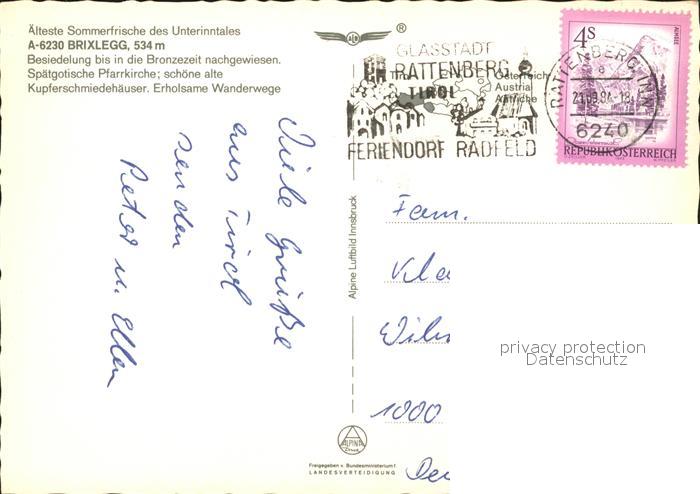 Älteste Sommerfrische des Unterinntales
A-6230 BRIXLEGG, 534 m
Besiedelung bis in die Bronzezeit nachgewiesen.
Spätgotische Pfarrkirche; schöne alte
Kupferschmiedehäuser. Erholsame Wanderwege
Viele Grüße
aus Tirol
senden
Peter u. Ellen
Alpine Luftbild Innsbruck
®
GLASSTADT
RATTENBERG
TIROL
Österreich
Austria
Autriche
FERIENDORF RADFELD
RATTENBERG, INN
21.09.84-18
6240
4S
REPUBLIK ÖSTERREICH
Fam.
Kla
Wilh
1000
privacy protection
Datenschutz
ALPINE
Freigegeben v. Bundesministerium f.
LANDESVERTEIDIGUNG